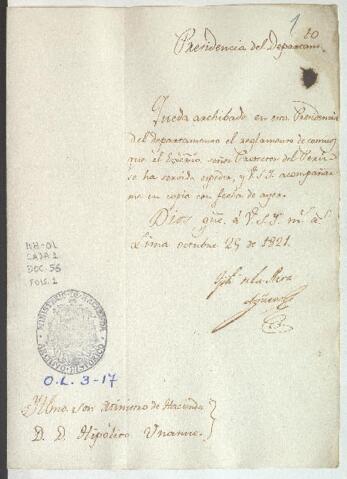 1 20
Presidencia del Departam.
Queda archibado en esta Presidencia
del departamento el reglamento de comer
que el Exmo. señor Protector del Perú
se ha servido expedir, y V.S.I. acompañar
me en copia con fecha de ayer.
Dios gue. á V.S.I. ms. as.
Lima octubre 25 de 1821.
de la Riva
Aguero
MH-OL
CAJA 1
DOC. 56
FOLS. 1
MINISTERIO DE HACIENDA
ARCHIVO HISTORICO
O.L. 3-17
Yltmo. Sor. Ministro de Hacienda
D. D. Hipólito Unanue.